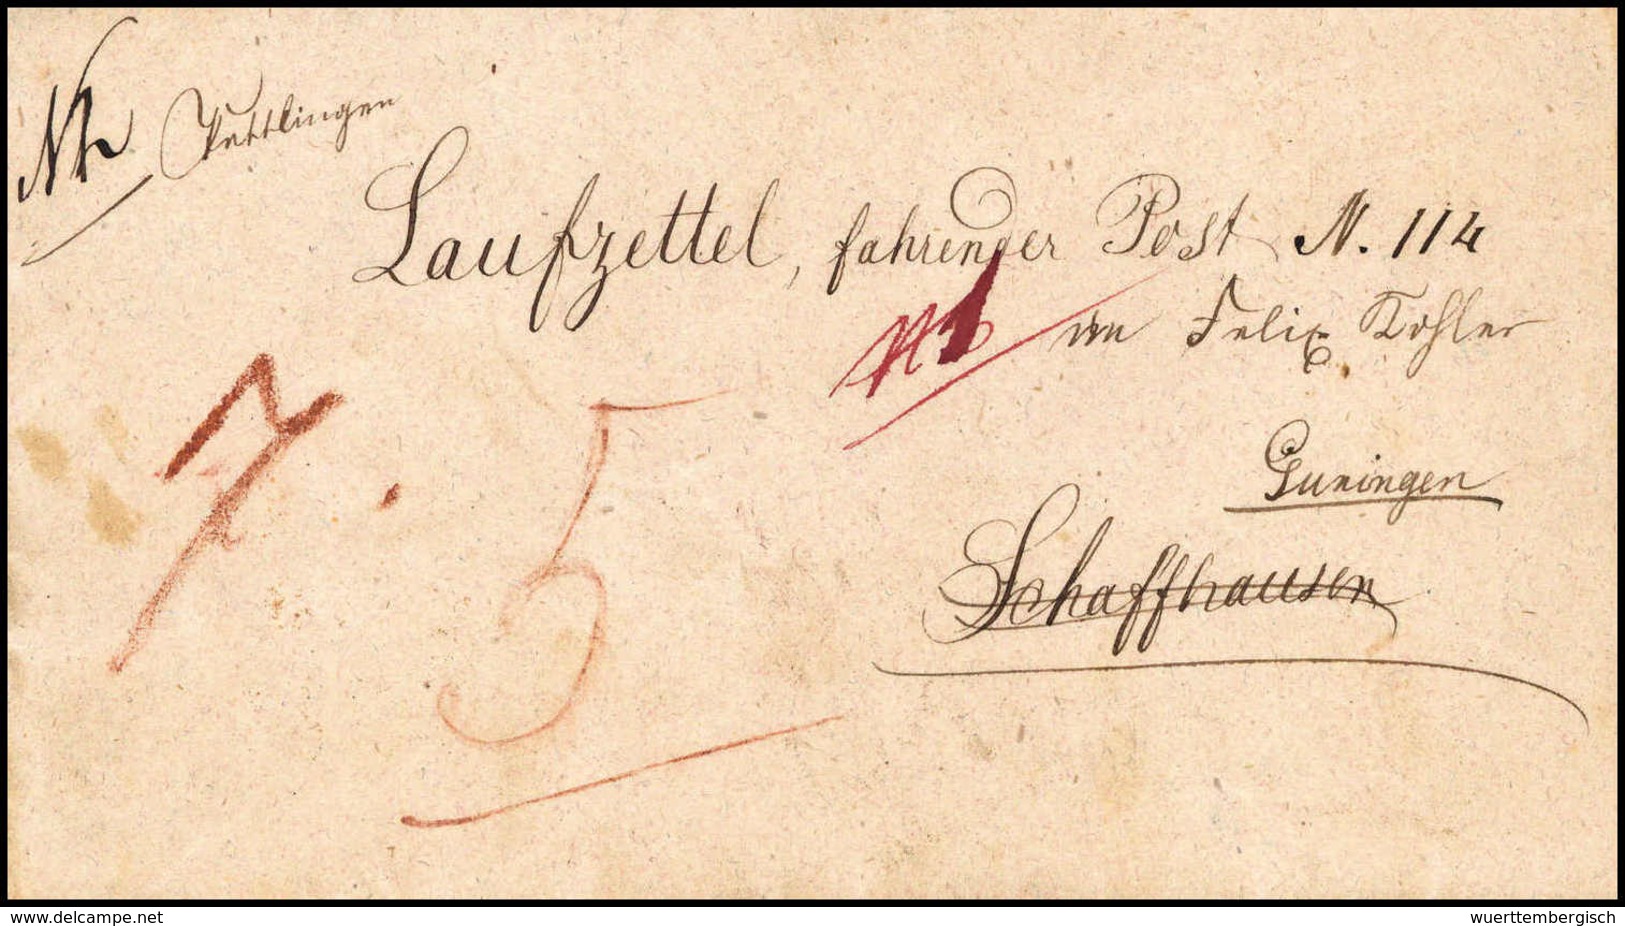 Laufzettel, fahrender Post N. 114
an Felix Kohler
7. 5
Guningen
Schaffhausen
© www.delcampe.net
wuerttembergisch